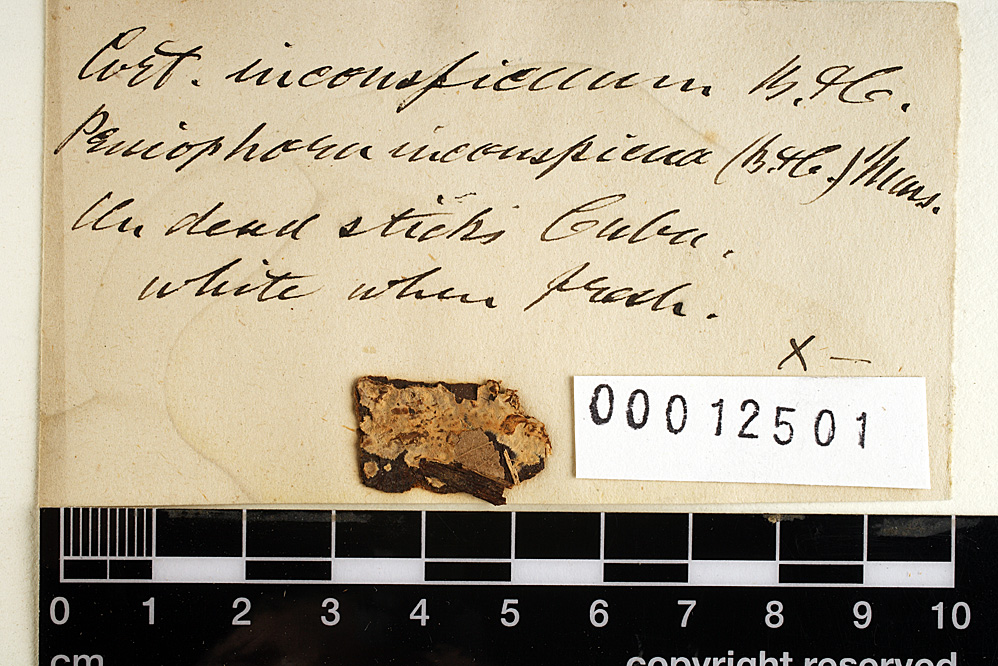 Cort. inconspicuum B. & C.
Peniophora inconspicua (B. & C.) Mass.
On dead sticks Cuba.
white when fresh.
X —
00012501
0 1 2 3 4 5 6 7 8 9 10
cm copyright reserved